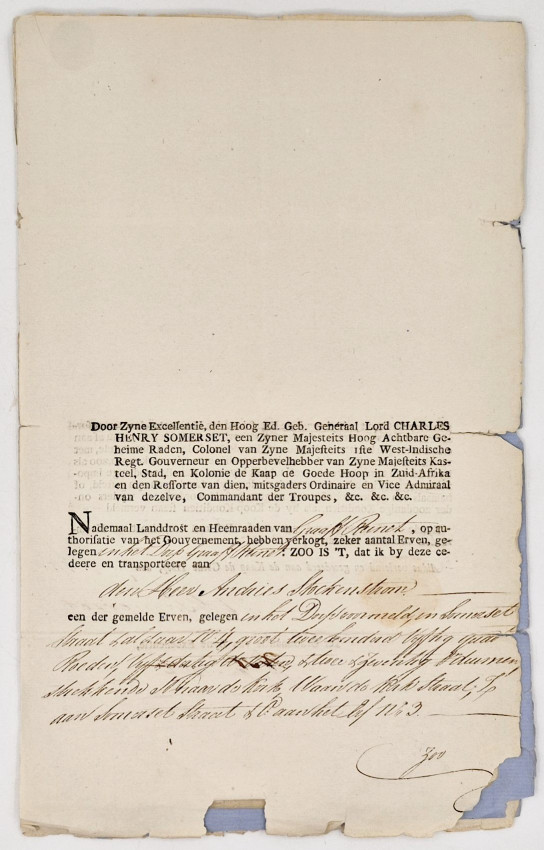 Door Zyne Excellentie, den Hoog Ed. Geb. Generaal Lord CHARLES
HENRY SOMERSET, een Zyner Majesteits Hoog Achtbare Ge-
heime Raden, Colonel van Zyne Majesteits 1ste West-Indische
Regt. Gouverneur en Opperbevelhebber van Zyne Majesteits Kas-
teel, Stad, en Kolonie de Kaap de Goede Hoop in Zuid-Afrika
en den Ressorte van dien, mitsgaders Ordinaire en Vice Admiraal
van dezelve, Commandant der Troupes, &c. &c. &c.
Nademaal Landdrost en Heemraaden van Graaff Reinet, op au-
thorisatie van het Gouvernement, hebben verkogt, zeker aantal Erven, ge-
legen in het Dorp Graaff Reinet. ZOO IS 'T, dat ik by deze ce-
deere en transporteere aan
den Heer Andries Stockenstrom
een der gemelde Erven, gelegen in het Dorp voormeld, in Somerset
Straat groot twee honderd vyftig
Roeden, en Zeventig
Strekkende Straat;
aan Somerset Straat aan het
Zoo